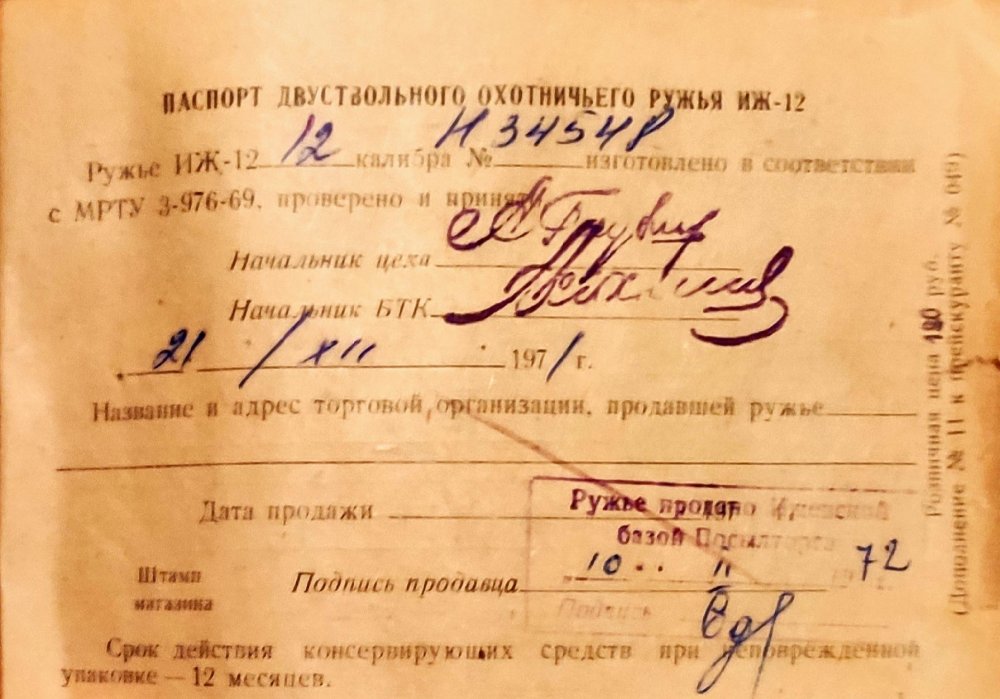 ПАСПОРТ ДВУСТВОЛЬНОГО ОХОТНИЧЬЕГО РУЖЬЯ ИЖ-12
Ружье ИЖ-12 12 калибра № Н34548 изготовлено в соответствии
с МРТУ 3-976-69, проверено и принято
Начальник цеха
Начальник БТК
21 / XII 1971 г.
Название и адрес торговой организации, продавшей ружье
Дата продажи
Ружье продано Ижевской
базой Посылторга
Штамп
магазина
Подпись продавца
10 II 72
Подпись
Срок действия консервирующих средств при неповрежденной
упаковке — 12 месяцев.
Розничная цена руб.
(Дополнение № 11 к прейскуранту № 049)